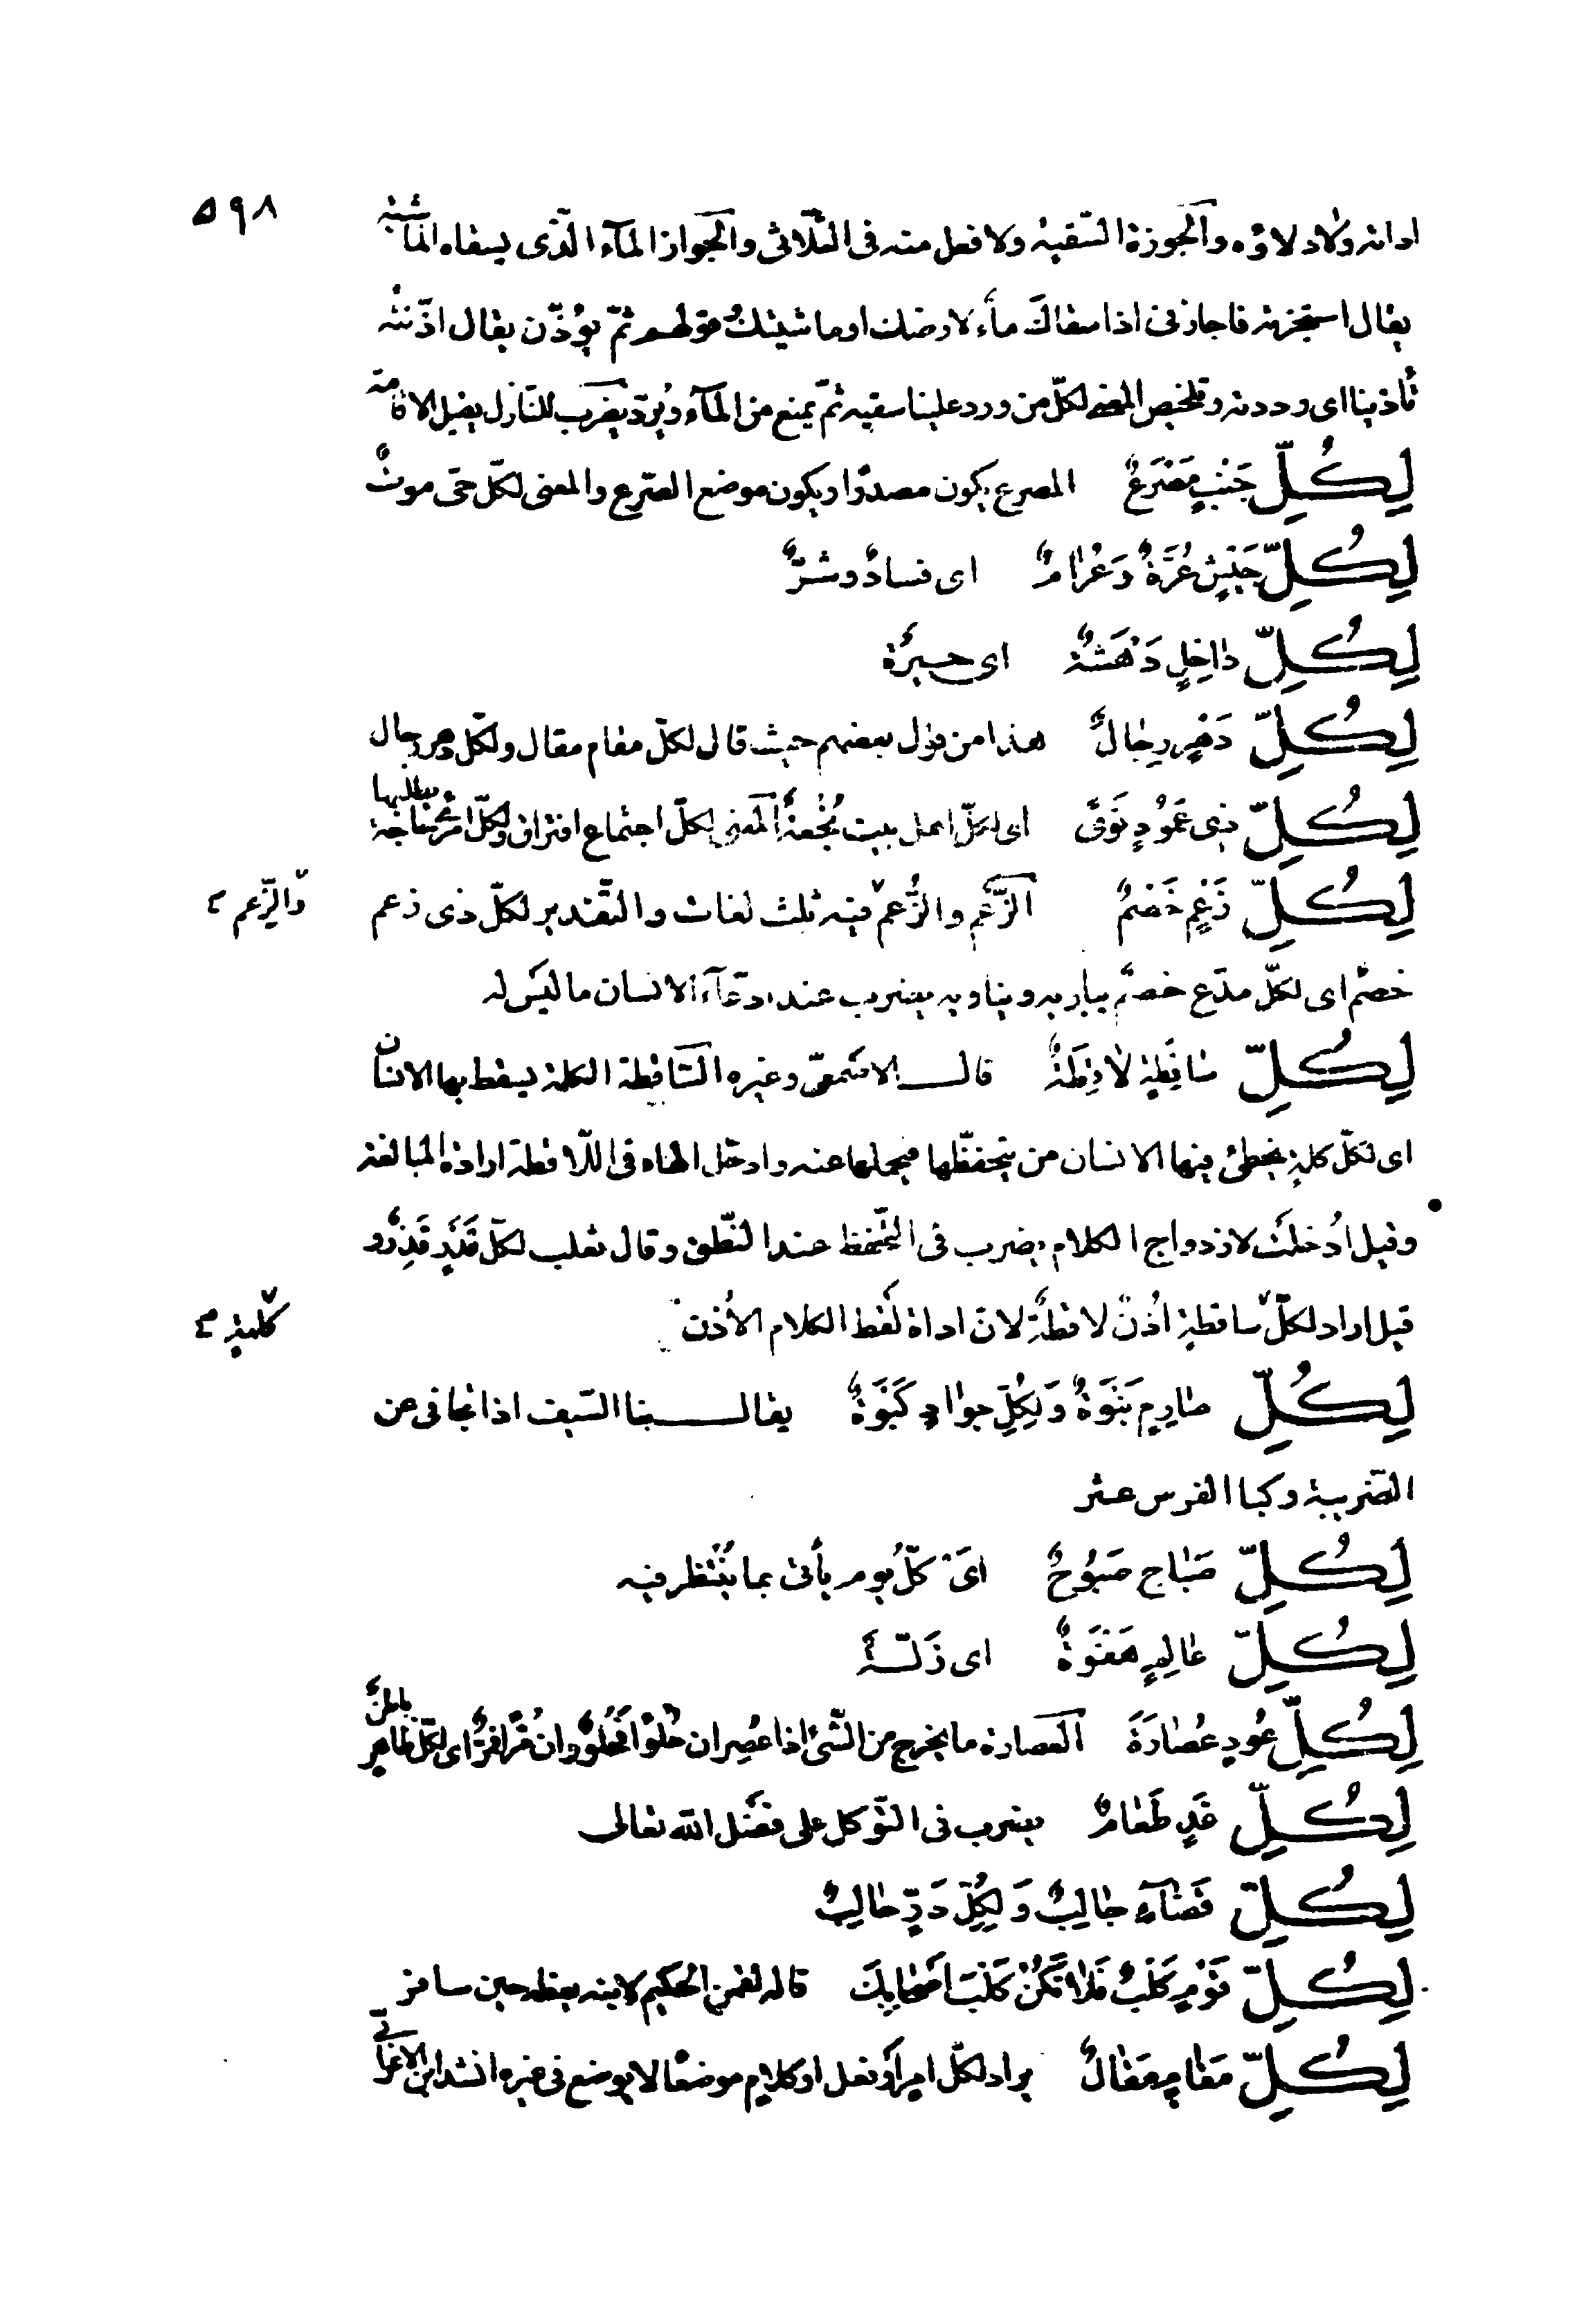 ٥٩٨
اداته ولا دلاؤه والجوزة السّقية ولا فعل منه فى الثّلاثى والجواز المآء الّذى يسقاه الماشية
يقال استجزته فاجازنى اذا سقاك مآء لارضك او ماشيتك وقولهم ثمّ يؤذّن يقال اذّنته
تأذينا اى رددته وتلخيص المعنى لكلّ من ورد علينا سقية ثمّ يمنع من المآء ويُردّ يضرب للنّازل يطيل الاقامة
لِكُلِّ جَنْبٍ مَصْرَعٌ المصرع يكون مصدرًا ويكون موضع الصّرع والمعنى لكلّ حىّ موتٌ
لِكُلِّ جَيْشٍ عُرَّةٌ وَعُرَامٌ اى فسادٌ وشرٌّ
لِكُلِّ دَاخِلٍ دَهْشَةٌ اى حيرةٌ
لِكُلِّ دَهْرٍ رِجَالٌ هذا من قول بعضهم حيث قال لكلّ مقام مقال ولكلّ دهر رجال
لِكُلِّ ذِى عَمُودٍ نَوًى اى لكلّ اهل بيت نُجْعةٌ المعنى لكلّ اجتماع افتراق ولكلّ امرئ حاجة يطلبها
لِكُلِّ زَعْمٍ خَصْمٌ الزَّعم والزُّعم والزِّعم فيه ثلث لغات والتّقدير لكلّ ذى زعم
خصمٌ اى لكلّ مدّع خصمٌ يباريه ويناويه يضرب عند ادّعآء الانسان ما ليس له
لِكُلِّ سَاقِطَةٍ لَاقِطَةٌ قال الاصمعىّ وغيره السّاقطة الكلمة يسقط بها الانسان
اى لكلّ كلمة يخطئ فيها الانسان من يتحفّظها فيحملها عنه وادخل الهاء فى اللّاقطة ارادة المبالغة
وقيل اُدخلت لازدواج الكلام يضرب فى التّحفّظ عند النّطق وقال ثعلب لكلّ قَذَرٍ قَذِرٌ و
قيل اراد لكلّ كلمةٍ ساقطةٍ اُذنٌ لاقطةٌ لانّ اداة لَقط الكلام الاُذن
لِكُلِّ صَارِمٍ نَبْوَةٌ وَلِكُلِّ جَوَادٍ كَبْوَةٌ يقال نبا السّيف اذا تجافى عن
الضّريبة وكبا الفرس عثر
لِكُلِّ صَبَاحٍ صَبُوحٌ اى كلّ يوم يأتى بما يُنْتظر فيه
لِكُلِّ عَالِمٍ هَفْوَةٌ اى زَلّةٌ
لِكُلِّ عُودٍ عُصَارَةٌ العصارة ما يخرج من الشّئ اذا عُصِر ان حُلوًا فحُلوٌ وان مُرًّا فمُرٌّ اى لكلّ ظاهرٍ باطنٌ
لِكُلِّ غَدٍ طَعَامٌ يضرب فى التّوكل على فضل الله تعالى
لِكُلِّ قَضَآءٍ جَالِبٌ وَلِكُلِّ دَرٍّ حَالِبٌ
لِكُلِّ قَوْمٍ كَلْبٌ فَلَا تَكُنْ كَلْبَ اَصْحَابِكَ قاله لقمن الحكيم لابنه يعظه حين سافر
لِكُلِّ مَقَامٍ مَقَالٌ يراد لكلّ امرٍ او فعل او كلام موضعًا لا يوضع فى غيره انشد ابن الاعرابى